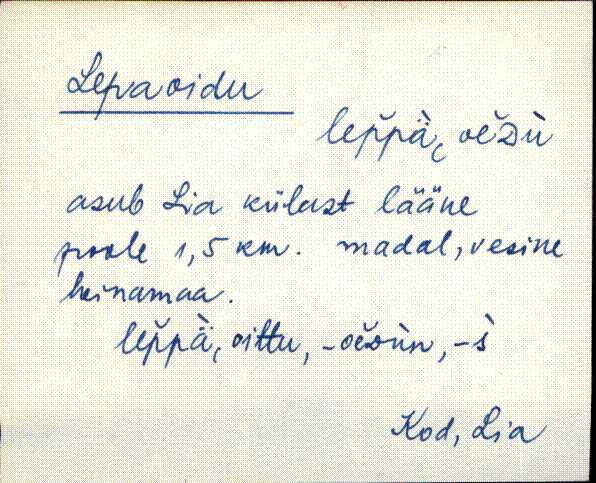 Lepaoidu
lep̆pä̀, oĕᴅù
asub Lia külast lääne
poole 1,5 km. madal, vesine
heinamaa.
lep̆pä̀, oittu, -oĕᴅùn, -s̀
Kod, Lia